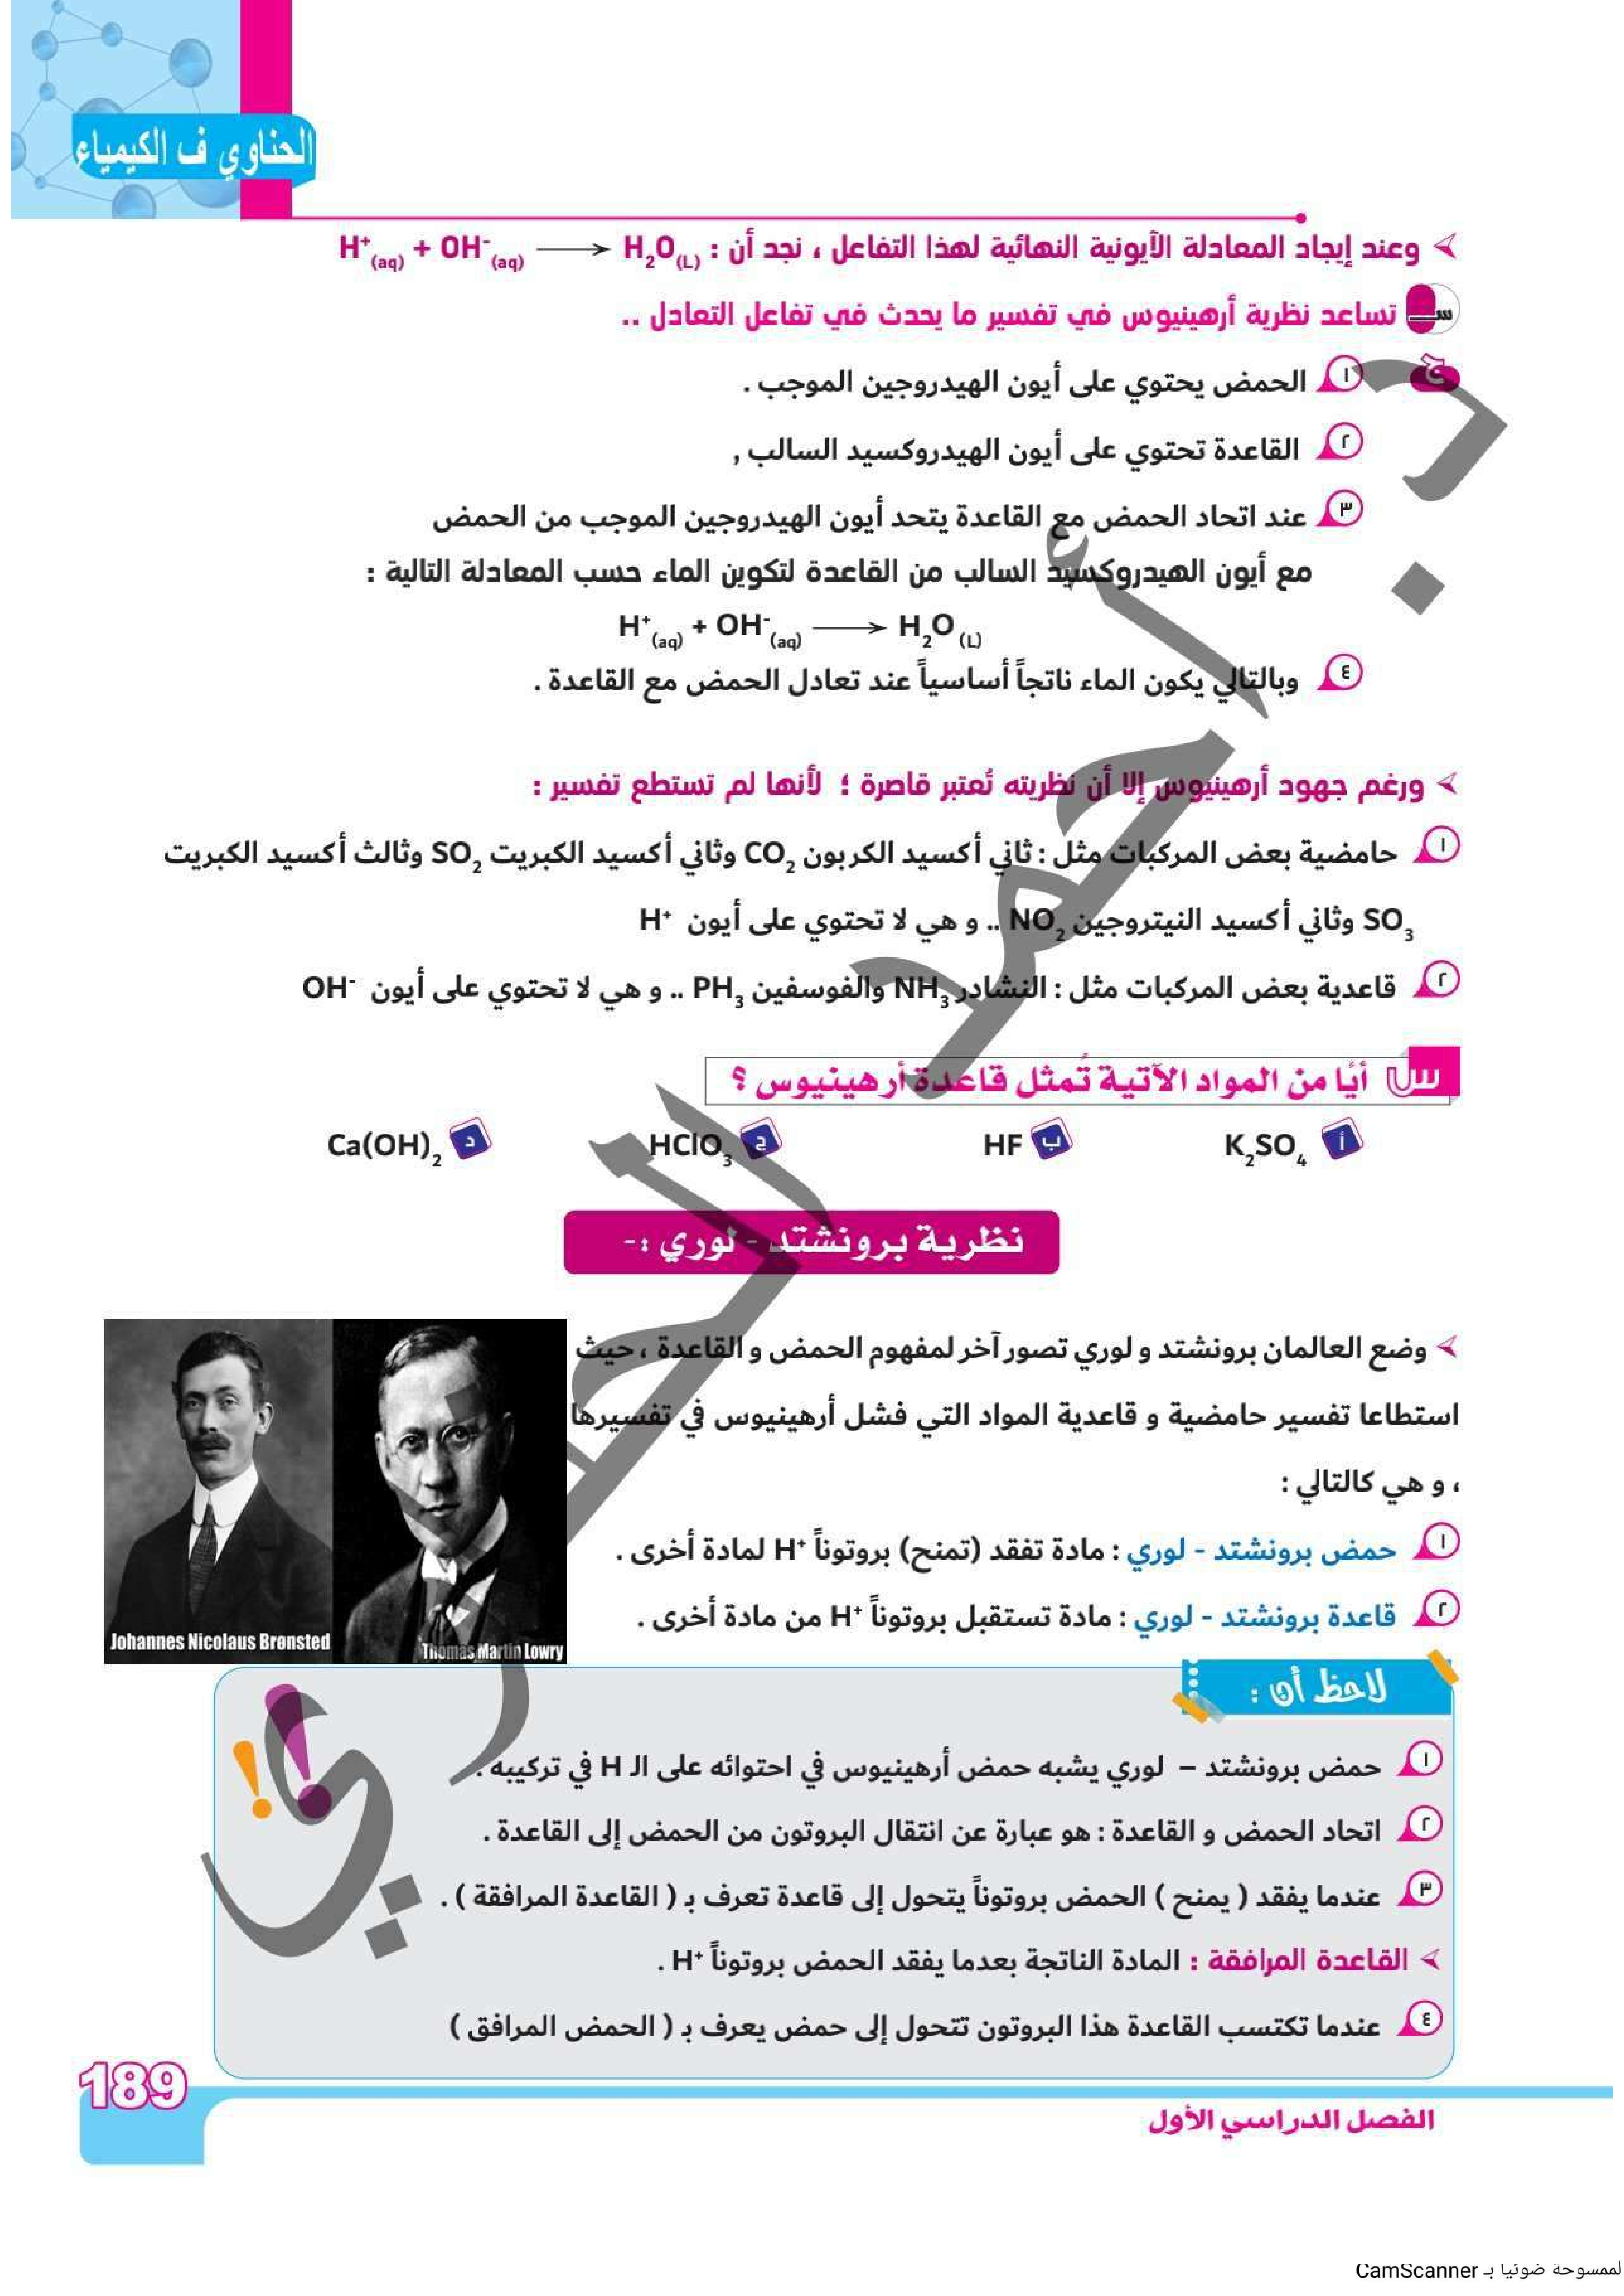 الحناوي ف الكيمياء
وعند إيجاد المعادلة الأيونية النهائية لهذا التفاعل ، نجد أن : H⁺(aq) + OH⁻(aq) ⟶ H₂O(L)
س تساعد نظرية أرهينيوس في تفسير ما يحدث في تفاعل التعادل ..
ج ١ الحمض يحتوي على أيون الهيدروجين الموجب .
٢ القاعدة تحتوي على أيون الهيدروكسيد السالب ,
٣ عند اتحاد الحمض مع القاعدة يتحد أيون الهيدروجين الموجب من الحمض
مع أيون الهيدروكسيد السالب من القاعدة لتكوين الماء حسب المعادلة التالية :
H⁺(aq) + OH⁻(aq) ⟶ H₂O(L)
٤ وبالتالي يكون الماء ناتجاً أساسياً عند تعادل الحمض مع القاعدة .
ورغم جهود أرهينيوس إلا أن نظريته تُعتبر قاصرة ؛ لأنها لم تستطع تفسير :
١ حامضية بعض المركبات مثل : ثاني أكسيد الكربون CO₂ وثاني أكسيد الكبريت SO₂ وثالث أكسيد الكبريت
SO₃ وثاني أكسيد النيتروجين NO₂ .. و هي لا تحتوي على أيون H⁺
٢ قاعدية بعض المركبات مثل : النشادر NH₃ والفوسفين PH₃ .. و هي لا تحتوي على أيون OH⁻
س أيًا من المواد الآتية تُمثل قاعدة أرهينيوس ؟
أ K₂SO₄ ب HF ج HClO₃ د Ca(OH)₂
نظرية برونشتد - لوري :-
وضع العالمان برونشتد و لوري تصور آخر لمفهوم الحمض و القاعدة ، حيث
استطاعا تفسير حامضية و قاعدية المواد التي فشل أرهينيوس في تفسيرها
، و هي كالتالي :
١ حمض برونشتد - لوري : مادة تفقد (تمنح) بروتوناً H⁺ لمادة أخرى .
٢ قاعدة برونشتد - لوري : مادة تستقبل بروتوناً H⁺ من مادة أخرى .
Johannes Nicolaus Brønsted
Thomas Martin Lowry
لاحظ أن :
١ حمض برونشتد – لوري يشبه حمض أرهينيوس في احتوائه على الـ H في تركيبه .
٢ اتحاد الحمض و القاعدة : هو عبارة عن انتقال البروتون من الحمض إلى القاعدة .
٣ عندما يفقد ( يمنح ) الحمض بروتوناً يتحول إلى قاعدة تعرف بـ ( القاعدة المرافقة ) .
القاعدة المرافقة : المادة الناتجة بعدما يفقد الحمض بروتوناً H⁺ .
٤ عندما تكتسب القاعدة هذا البروتون تتحول إلى حمض يعرف بـ ( الحمض المرافق )
189
الفصل الدراسي الأول
الممسوحة ضوئيا بـ CamScanner